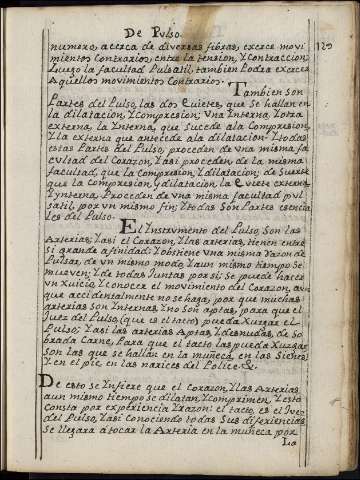 De Pulso.
129
numero, acerca de diversas fibras, exerce movi
mientos Contrarios, entre la tension, Y Contraccion,
Luego la facultad Pulsatil, tambien Podra exercer
Aquellos movimientos Contrarios.
Tambien son
Partes del Pulso, las dos Quietes, que Se hallan en
la dilatacion, Y Compresion; Vna Ynterna, Y otra
externa, la Ynterna, que Sucede ala Compresion,
Y la externa que antecede ala dilatacion: Y todas
estas Partes del Pulso, proceden de vna misma fa
cultad del Corazon, Y asi proceden de la misma
facultad, que la Compresion, Y dilatacion; de Suerte
que la compresion, y dilatacion, la Quiete externa
Y ynterna, Proceden de vna misma facultad pul
satil, por vn mismo fin; Y todas Son Partes esencia
les del Pulso.
El Ynstrumento del Pulso, Son las
Arterias; Y asi el Corazon, Y las arterias, tienen entre
Si grande afinidad; Y obtiene vna misma Razon de
Pulsar, de vn mismo modo, Y aun mismo tiempo Se
mueven; Y de todas Juntas por si, Se puede hacer
vn Xuicio, Y conocer el movimiento del Corazon, aun
que accidentalmente no se haga, por que muchas
arterias Son Ynternas, Y no Son aptas, para que el
Juez del Pulso, (que es el tacto) pueda Xuzgar el
Pulso; Y asi las arterias Aptas, Y desnudas, de So
brada Carne, Para que el tacto las pueda Xuzgar
Son las que se hallan en la muñeca, en las Sienes,
Y en el pie, en las narices del Police &.
De esto se Ynfiere que el Corazon, Y las Arterias,
aun mismo tiempo Se dilatan, Y Comprimen, Y esto
Consta por experiencia Y razon: el tacto, es el Juez
del Pulso, Y asi Conociendo todas Sus diferencias,
Se llegara à tocar la Arteria en la muñeca por
La